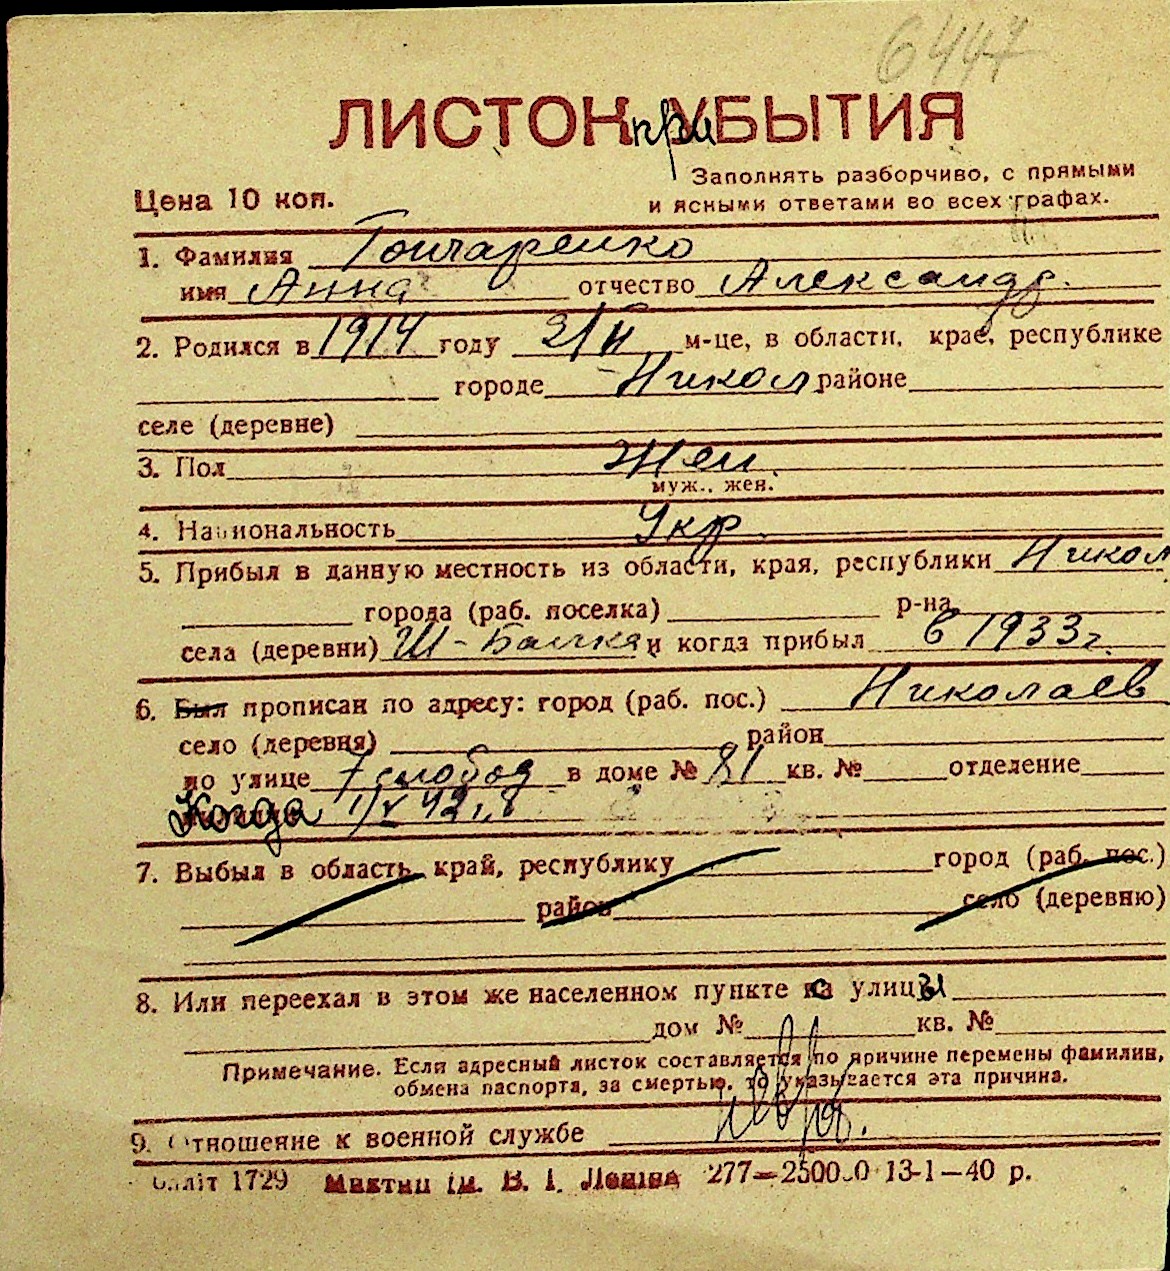 6447
ЛИСТОК при УБЫТИЯ
Заполнять разборчиво, с прямыми
Цена 10 коп.
и ясными ответами во всех графах.
1. Фамилия Гончаренко
имя Анна отчество Александр.
2. Родился в 1914 году 2/II м-це, в области, крае, республике
городе Никол районе
селе (деревне)
3. Пол Жен.
муж., жен.
4. Национальность Укр.
5. Прибыл в данную местность из области, края, республики Никол
города (раб. поселка) р-на
села (деревни) Ш-Балка и когда прибыл в 1933г.
6. Был прописан по адресу: город (раб. пос.) Николаев
село (деревня) район
по улице 7 слобод в доме № 81 кв. № отделение
Когда 1/V 42г.
7. Выбыл в область, край, республику город (раб. пос.)
район село (деревню)
8. Или переехал в этом же населенном пункте с улицы
дом № кв. №
Примечание. Если адресный листок составляется по причине перемены фамилии,
обмена паспорта, за смертью, то указывается эта причина.
9. Отношение к военной службе
1729 ім. В. І. Леніна 277—2500.0 13-1—40 р.